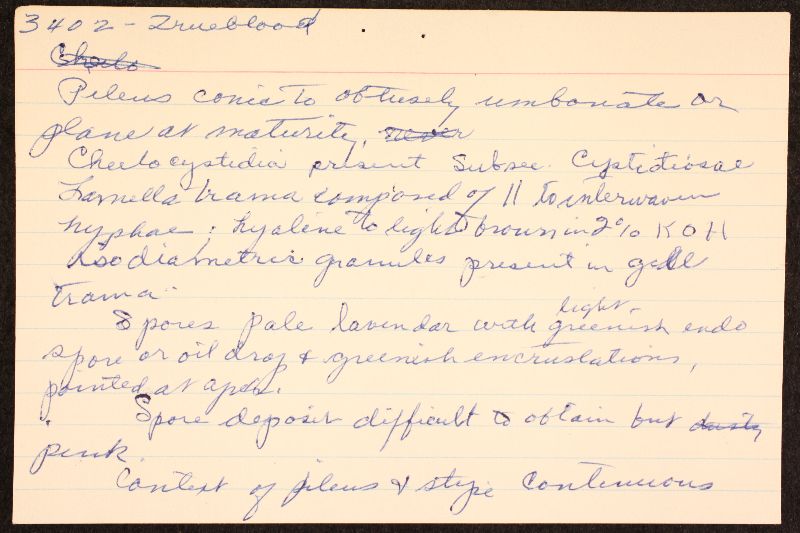 3402 - Trueblood
Cheilo
Pileus conic to obtusely umbonate or
plane at maturity, never
Cheilocystidia present Subsec. Cystidiosae
Lamella trama composed of 11 to interwoven
hyphae: hyaline to light brown in 2% KOH
Isodiametric granules present in gill
trama
Spores pale lavendar with light greenish endo
spore or oil drop & greenish encrustations,
pointed at apex.
Spore deposit difficult to obtain but dusty
pink.
Context of pileus & stipe continuous